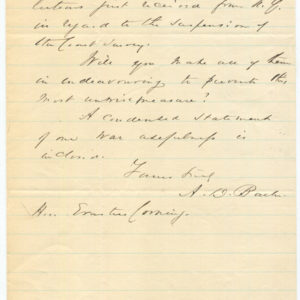 lutions just received from N.Y.
in regard to the suspension of
the Coast Survey.
Will you make use of them
in endeavouring to prevent this
most unwise measure?
A condensed statement
of our war usefulness is
inclosed.
Yours truly
A. D. Bache
Hon. Erastus Corning.